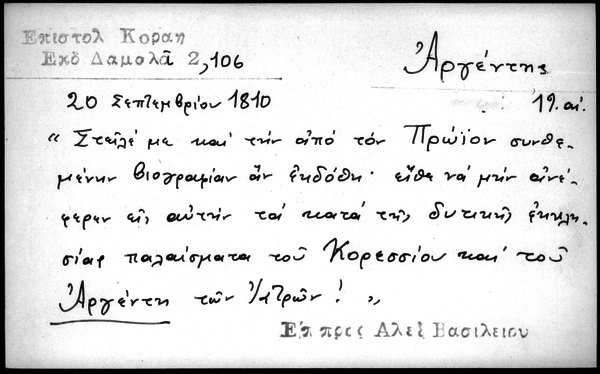 Επιστολ Κοραη
Εκδ Δαμαλᾶ 2,106
Ἀργέντης
20 Σεπτεμβρίου 1810
19. αἰ.
“ Στεῖλέ με καὶ τὴν ἀπὸ τὸν Πρώϊον συνθε-
μένην βιογραφίαν ἂν ἐκδόθη· εἴθε νὰ μὴν ἀνέ-
φερεν εἰς αὐτὴν τὰ κατὰ τῆς δυτικῆς ἐκκλη-
σίας παλαίσματα τοῦ Κορεσσίου καὶ τοῦ
Ἀργέντη τῶν Ἰατρῶν! „
Επ προς Αλεξ Βασιλειου